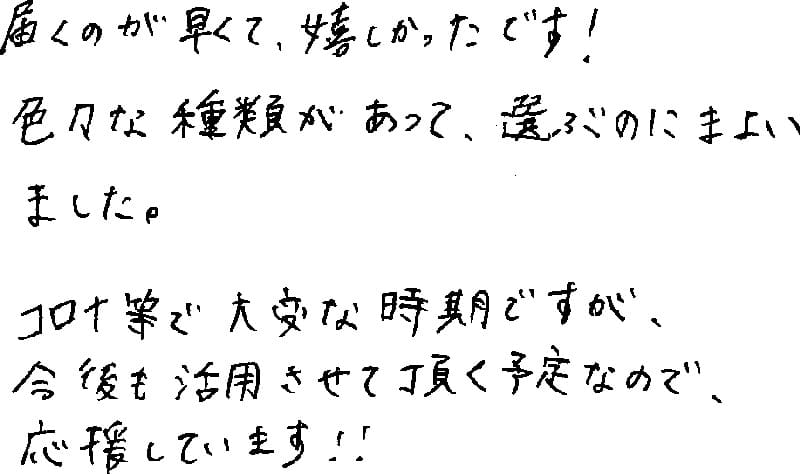 届くのが早くて、嬉しかったです!
色々な種類があって、選ぶのにまよい
ました。
コロナ等で大変な時期ですが、
今後も活用させて頂く予定なので、
応援しています!!